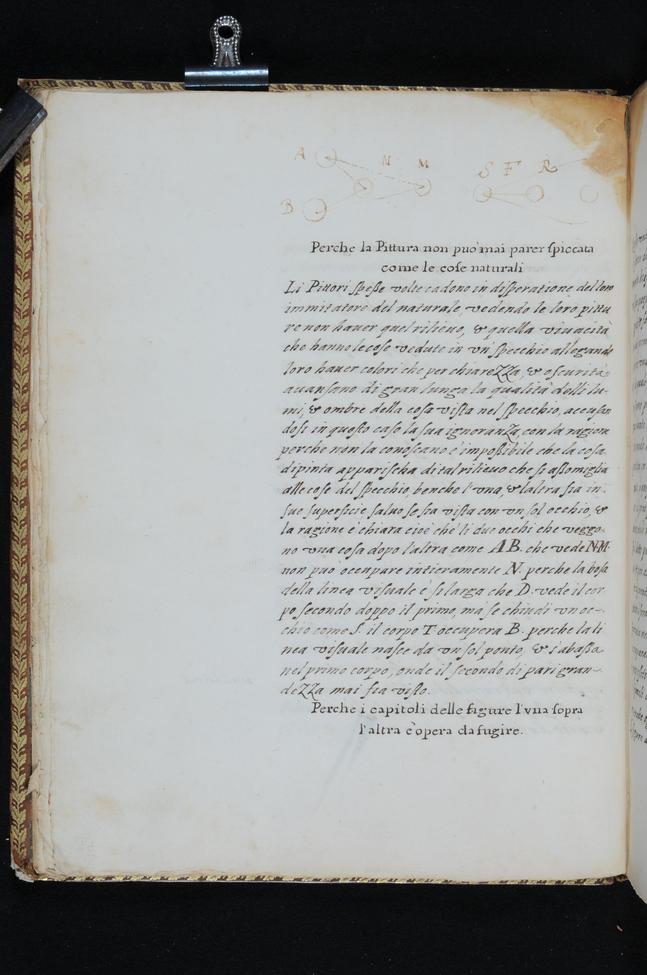 A N M S F R
B
Perche la Pittura non puo mai parer spiccata
come le cose naturali
Li Pittori spesse volte cadono in disperatione del loro
immitatore del naturale, vedendo le loro pittu
re non haver quel rilievo, & quella vivacità
che hanno le cose vedute in un specchio allegando
loro haver colori che per chiareZZa, & oscurità
avansano di gran lunga la qualità delli lu-
mi, & ombre della cosa vista nel specchio, accusan
dosi in questo caso la sua ignoranZa, con la ragion
perche non la conoscano è impossibile che la cosa
dipinta apparischa di tal rilievo che si assomiglia
alle cose del specchio, benche l'una, & l'altra sia in-
sue superficie salvo se sia vista con un sol occhio, &
la ragione è chiara cioè che li due occhi che veggo
no una cosa dopo l'altra come A B. che vede N M.
non può occupare intieramente N. perche la basa
della linea visuale è si larga che D. vede il cor
po secondo doppo il primo, ma se chiudi un oc-
chio come S. il corpo T. occupera B. perche la li
nea visuale nasce da un sol ponto, & s'abassa
nel primo corpo, onde il secondo di pari gran-
deZZa mai sia visto.
Perche i capitoli delle figure l'una sopra
l'altra è opera da fugire.